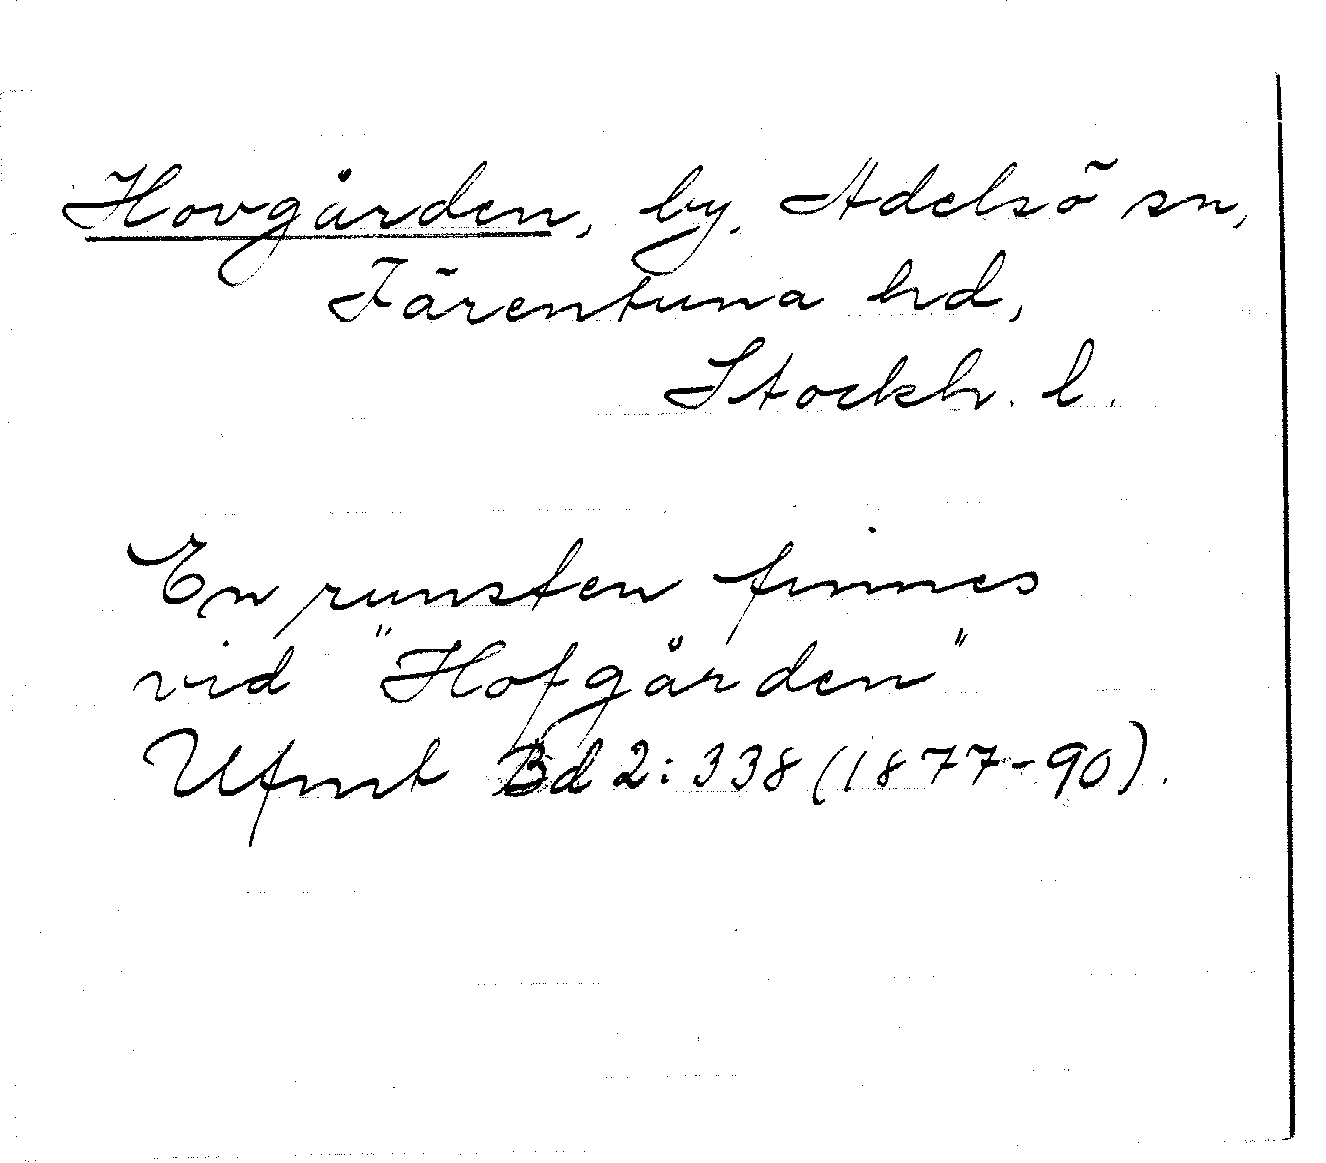 Hovgården, by, Adelsö sn,
Färentuna hd,
Stockh. l.
En runsten finnes
vid "Hofgården"
Ufmt Bd 2: 338 (1877-90).